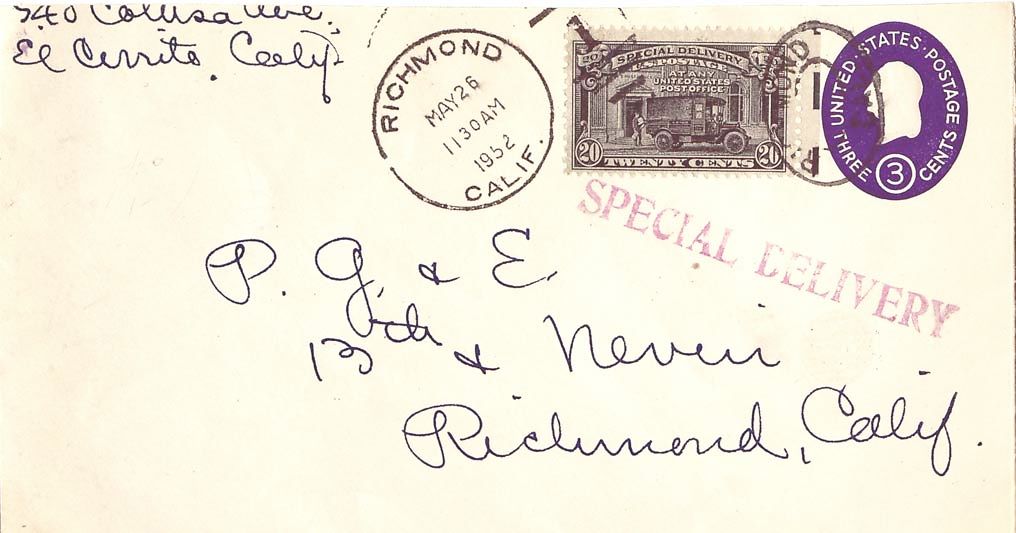 540 Colusa Ave.
El Cerrito. Calif
RICHMOND
MAY 26
1130 AM
1952
CALIF.
20 SPECIAL DELIVERY 20
U.S. POSTAGE
AT ANY
UNITED STATES
POST OFFICE
20 TWENTY CENTS 20
UNITED STATES POSTAGE
THREE 3 CENTS
SPECIAL DELIVERY
P. G. & E.
13th & Nevin
Richmond, Calif.